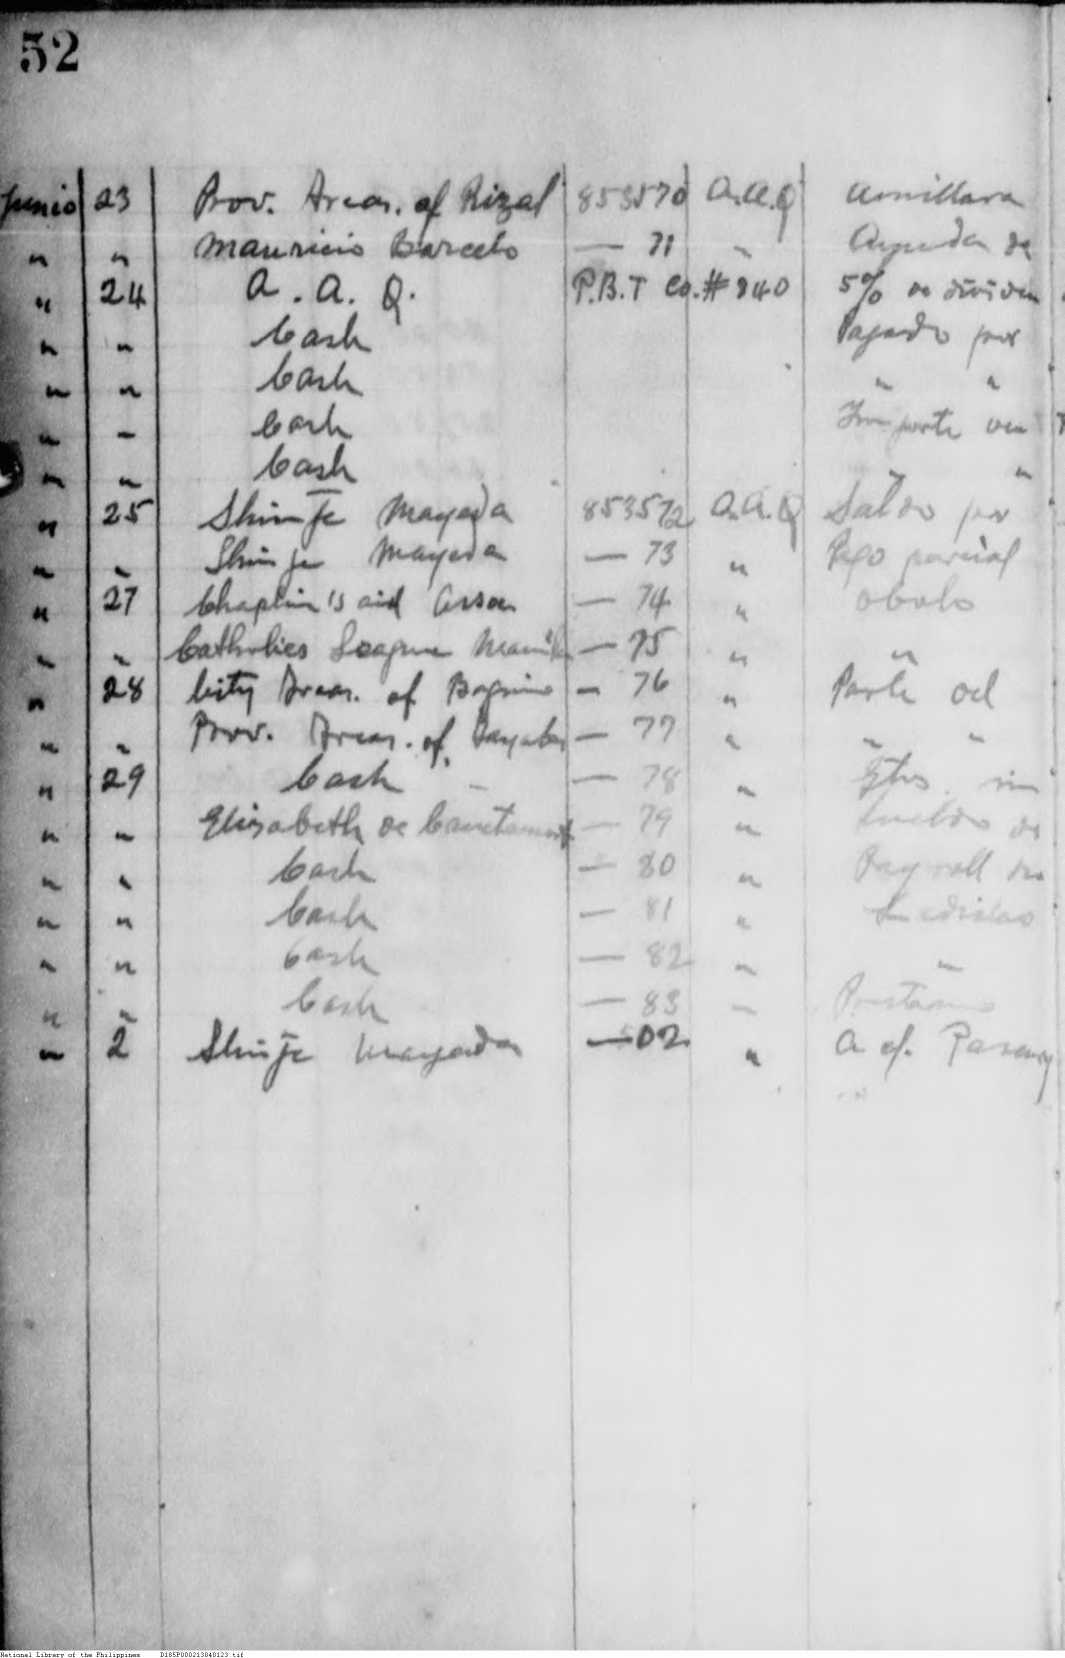 52
Junio 23 Prov. Treas. of Rizal 853570 A.A.Q Amillara
" " Mauricio Barcelo — 71 " Ayuda de
" 24 A. A. Q. P.B.T Co. # 240 5% de dividen
" " Cash Pagado por
" " Cash " "
" " Cash Importe
" " Cash "
" 25 Shinje Mayeda 853572 A.A.Q Saldo por
" " Shinje Mayeda — 73 " Pago parcial
" 27 Chaplin's aid Asson — 74 " Obolo
" " Catholics League Manila — 75 " "
" 28 City Treas. of Baguio — 76 " Parte del
" " Prov. Treas. of Tayabas — 77 " " "
" 29 Cash — 78 " Gtos.
" " Elizabeth de — 79 " Sueldo de
" " Cash — 80 " Payroll
" " Cash — 81 " Ladislao
" " Cash — 82 " "
" " Cash — 83 " Prestamo
" 2 Shinje Mayeda — 02 " A of.
National Library of the Philippines D185P000213040123.tif